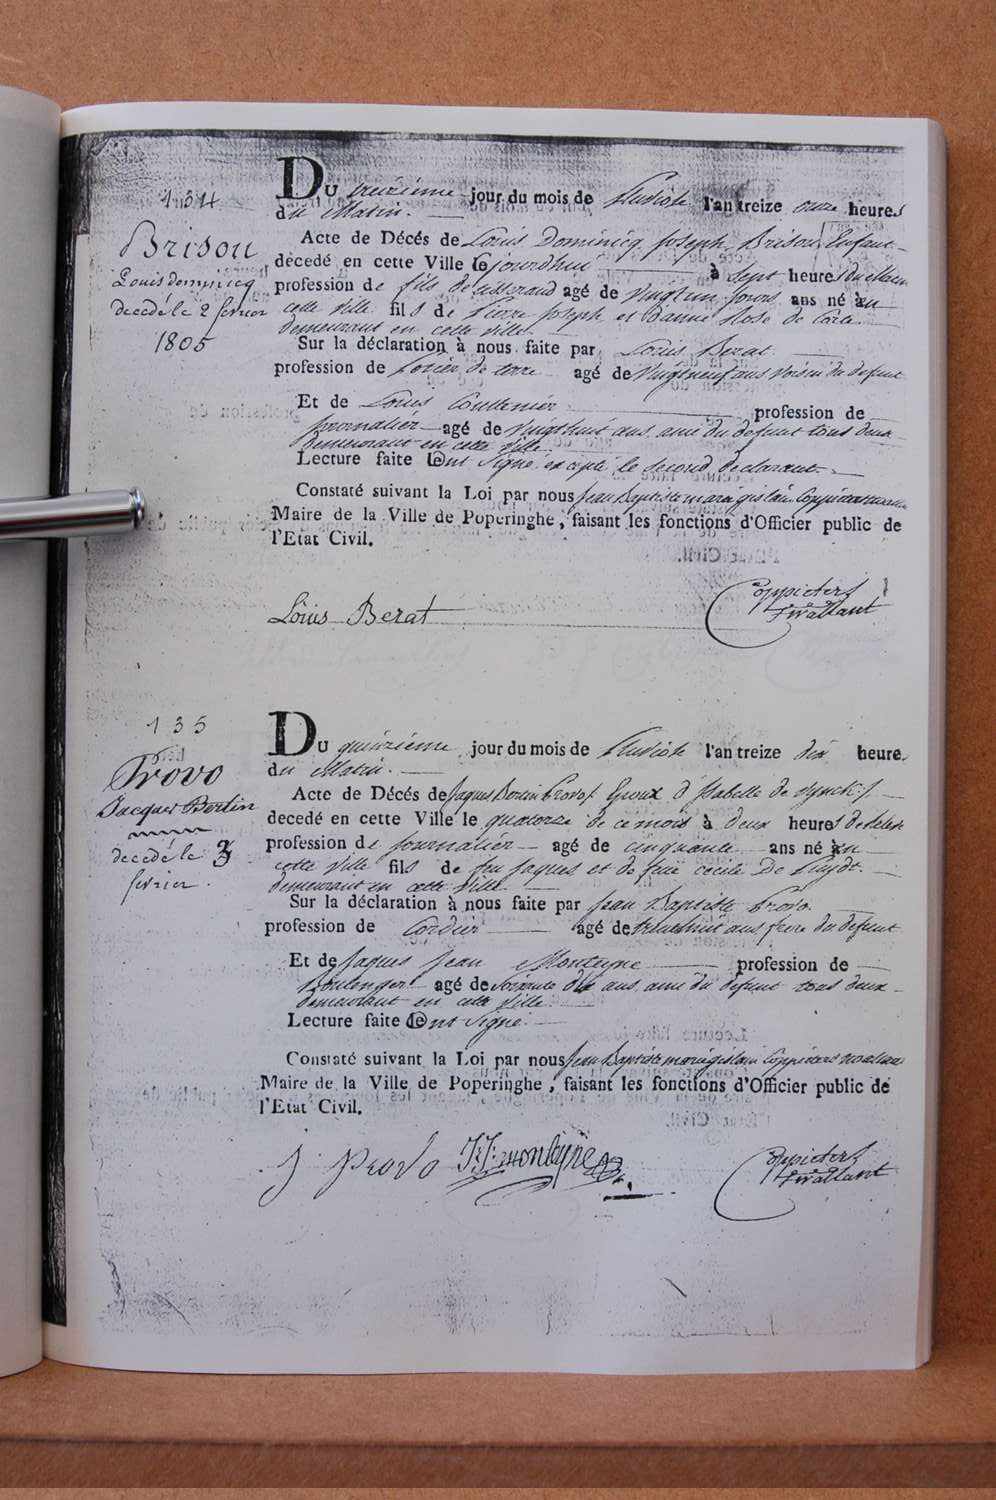 134
Du treizième jour du mois de Pluviose l'an treize onze heures
du Matin.
Brisou
Louis dominicq
decedé le 2 fevrier
1805
Acte de Décés de Louis Dominicq Joseph Brisou Enfant
decedé en cette Ville le jourdhui à Sept heures du Matin
profession de fils de tisserand agé de vingt un jours ans né en
cette ville fils de Pierre Joseph et d'anne Rose de
demeurant en cette ville.
Sur la déclaration à nous faite par Louis Berat
profession de Potier de terre agé de vingtneuf ans voisin du defunt
Et de Louis profession de
journalier agé de vingthuit ans ami du defunt tous deux
demeurant en cette ville.
Lecture faite le ont Signé excepté le second declarant.
Constaté suivant la Loi par nous Jean Baptiste marie gislain Coppieters
Maire de la Ville de Poperinghe, faisant les fonctions d'Officier public de
l'Etat Civil.
Louis Berat
Coppieters
135
Du quinzième jour du mois de Pluviose l'an treize dix heures
du Matin.
Provo
Jacques Bertin
decedé le 3
fevrier.
Acte de Décés de Jaques Bertin Provo Epoux d'Isabelle de
decedé en cette Ville le quatorze de ce mois à deux heures de
profession de journalier agé de cinquante ans né en
cette ville fils de feu Jaques et de feue cecile De
demeurant en cette ville.
Sur la déclaration à nous faite par Jean Baptiste Provo.
profession de Cordier agé de trentehuit ans frere du defunt
Et de Jaques Jean Monteyne profession de
Boulenger agé de Soixante dix ans ami du defunt tous deux
demeurant en cette ville.
Lecture faite le ont Signé.
Constaté suivant la Loi par nous Jean Baptiste marie gislain Coppieters
Maire de la Ville de Poperinghe, faisant les fonctions d'Officier public de
l'Etat Civil.
J Provo J:J: monteyne
Coppieters